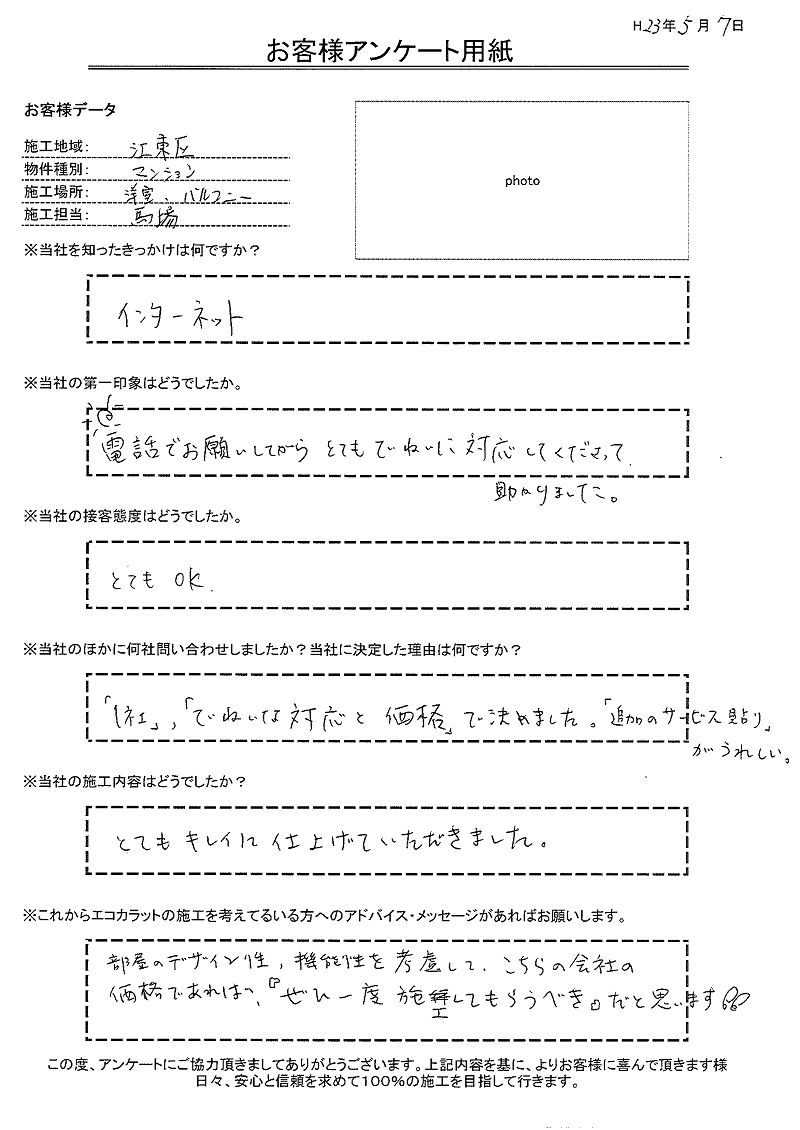 H23年5月7日
お客様アンケート用紙
お客様データ
photo
施工地域： 江東区
物件種別： マンション
施工場所： 洋室、バルコニー
施工担当： 馬場
※当社を知ったきっかけは何ですか？
インターネット
※当社の第一印象はどうでしたか。
電話でお願いしてから とてもていねいに対応してくださって
助かりました。
※当社の接客態度はどうでしたか。
とても OK.
※当社のほかに何社問い合わせしましたか？当社に決定した理由は何ですか？
「1社」,「ていねいな対応と 価格」で決めました。「追加のサービス貼り」
がうれしい。
※当社の施工内容はどうでしたか？
とても キレイに 仕上げていただきました。
※これからエコカラットの施工を考えてるいる方へのアドバイス・メッセージがあればお願いします。
部屋のデザイン性, 機能性を考慮して、こちらの会社の
価格であれば、『ぜひ一度 施工してもらうべき』だと思います
この度、アンケートにご協力頂きましてありがとうございます。上記内容を基に、よりお客様に喜んで頂きます様
日々、安心と信頼を求めて100%の施工を目指して行きます。